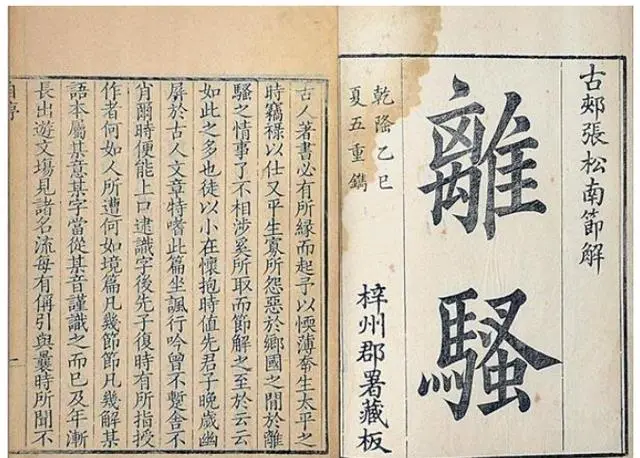 古郟張松南節解
離騷
乾隆乙巳
夏五重鐫
梓州郡署藏板
古人著書必有所緣而起予以愞薄幸生太平之
時竊祿以仕又平生寡所怨惡於鄉國之間於離
騷之情事了不相涉奚所取而節解之至於云云
如此之多也徒以小在懷抱時值先君子晚歲幽
屏於古人文章特嗜此篇坐諷行吟曾不蹔舍不
肖爾時便能上口逮識字後先子復時有所指授
作者何如人所遭何如境篇凡幾節節凡幾解某
語本屬某意某字當從某音謹識之而已及年漸
長出遊文塲見諸名流每有稱引與曩時所聞不